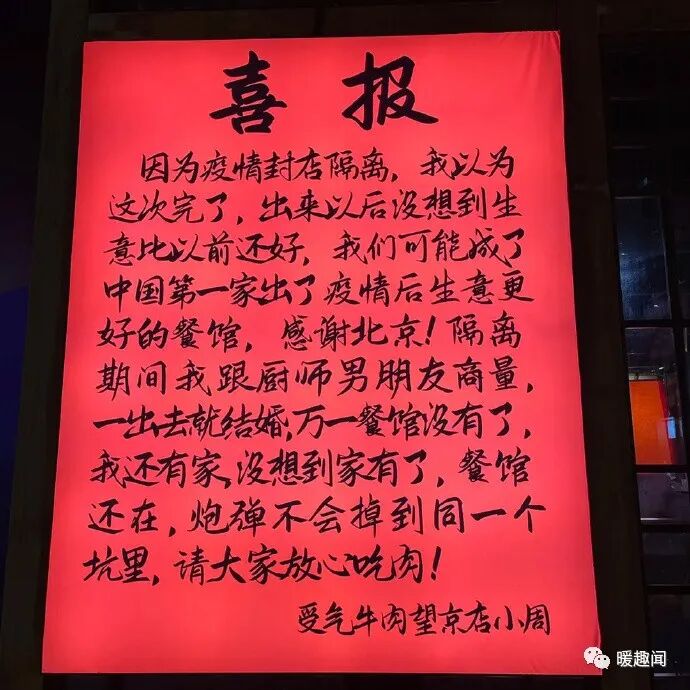 喜报
因为疫情封店隔离，我以为
这次完了，出来以后没想到生
意比以前还好，我们可能成了
中国第一家出了疫情后生意更
好的餐馆，感谢北京！隔离
期间我跟厨师男朋友商量，
一出去就结婚，万一餐馆没有了，
我还有家，没想到家有了，餐馆
还在，炮弹不会掉到同一个
坑里，请大家放心吃肉！
受气牛肉望京店小周
暖趣闻